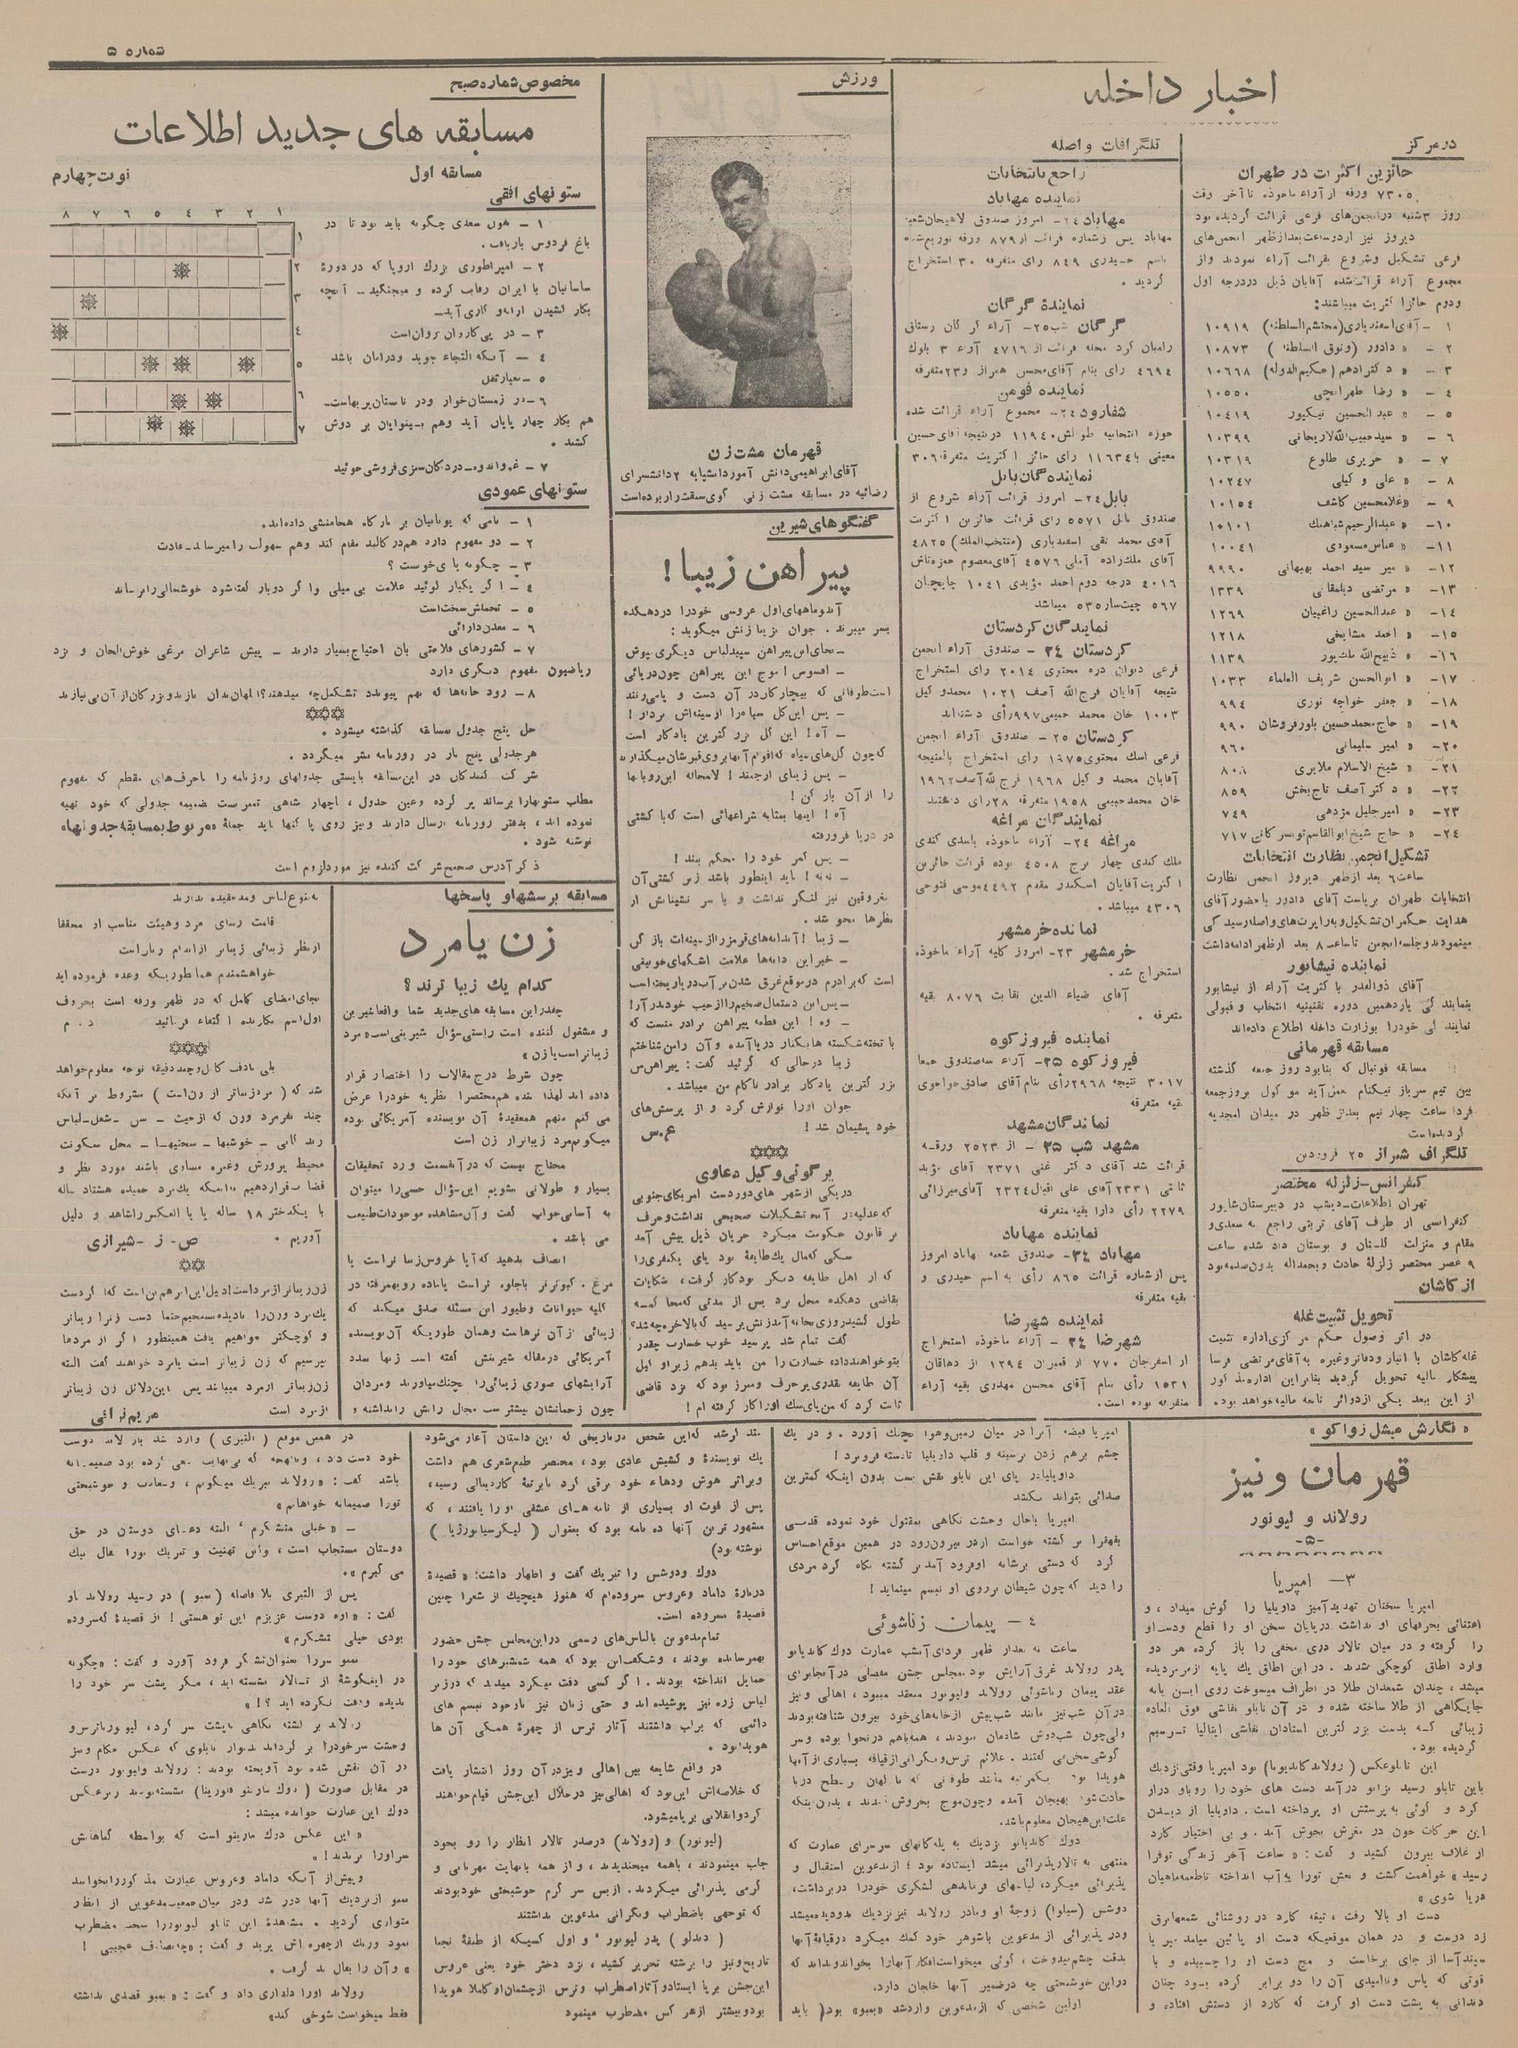 شماره ۵
اخبار داخله
در مرکز
حائزین اکثریت در طهران
۷۳۰۵ ورقه از آراء ماخوذه تا آخر وقت
روز ۳شنبه در انجمن‌های فرعی قرائت گردیده بود
دیروز نیز از دو ساعت بعد از ظهر انجمن‌های
فرعی تشکیل و شروع بقرائت آراء نمودند و از
مجموع آراء قرائت شده آقایان ذیل در درجه اول
ودوم حائز اکثریت میباشند:
۱ – آقای اسفندیاری (محتشم السلطنه) ۱۰۹۱۹
۲ – « دادور (وثوق السلطنه) ۱۰۸۷۳
۳ – « دکتر ادهم (حکیم الدوله) ۱۰۶۶۸
۴ – « رضا طهرانچی ۱۰۵۵۰
۵ – « عبدالحسین نیکپور ۱۰۴۱۹
۶ – « سید حبیب الله لاریجانی ۱۰۳۹۹
۷ – « حریری طلوع ۱۰۳۱۹
۸ – « علی وکیلی ۱۰۲۴۷
۹ – « غلامحسین کاشف ۱۰۱۵۴
۱۰– « عبدالرحیم شاهنک ۱۰۱۰۱
۱۱– « عباس مسعودی ۱۰۰۴۱
۱۲– « میر سید احمد بهبهانی ۹۹۹۰
۱۳– « مرتضی دیلمقانی ۱۳۳۹
۱۴– « عبدالحسین راغبیان ۱۲۶۹
۱۵– « احمد مشایخی ۱۲۱۸
۱۶– « ذبیح الله ملک پور ۱۱۳۹
۱۷– « ابوالحسن شریف العلماء ۱۰۳۳
۱۸– « جعفر خواجه نوری ۹۹۴
۱۹– « حاج محمدحسین بلورفروشان ۹۹۰
۲۰– « امیر سلیمانی ۹۶۰
۲۱– « شیخ الاسلام ملایری
۲۲– « دکتر آصف تاج بخش ۸۵۹
۲۳– « امیر جلیل مژدهی ۷۴۹
۲۴– « حاج شیخ ابوالقاسم تویسرکانی ۷۱۷
تشکیل انجمن نظارت انتخابات
ساعت ۶ بعد از ظهر دیروز انجمن نظارت
انتخابات طهران بریاست آقای دادور با حضور آقای
هدایت حکمران تشکیل و به راپرت‌های واصله رسیدگی
مینمودند و جلسه انجمن تا ساعت ۸ بعد از ظهر ادامه داشت
نماینده نیشابور
آقای ذوالقدر با کثریت آراء از نیشابور
بنمایندگی یازدهمین دوره تقنینیه انتخاب و قبولی
نمایندگی خود را بوزارت داخله اطلاع داده‌اند
مسابقه قهرمانی
مسابقه فوتبال که بنا بود روز جمعه گذشته
بین تیم سرباز نیکنام بعمل آید موکول بروز جمعه
فردا ساعت چهار و نیم بعد از ظهر در میدان امجدیه
گردیده است
تلگراف شیراز ۲۵ فروردین
کنفرانس–زلزله مختصر
تهران اطلاعات–دیشب در دبیرستان شاپور
کنفرانسی از طرف آقای تربتی راجع به سعدی و
مقام و منزلت گلستان و بوستان داد شده ساعت
۹ عصر مختصر زلزلهٔ حادث و بحمدالله بدون صدمه بود
از کاشان
تحویل تثبیت غله
در اثر وصول حکم مرکزی اداره تثبیت
غله کاشان با انبار و دفاتر و غیره به آقای مرتضی فرسا
پیشکار مالیه تحویل گردید بنابراین اداره مذکور
از این ببعد یکی از دوائر تابعه مالیه خواهد بود.
تلگرافات واصله
راجع بانتخابات
نماینده مهاباد
مهاباد ۲۴– امروز صندوق لاهیجان شعبه
مهاباد پس از شماره قرائت از ۸۷۹ ورقه توزیع شده
باسم حیدری ۸۴۹ رای متفرقه ۳۰ استخراج
گردید .
نمایندهٔ گرگان
گرگان شب ۲۵– آراء گرگان رستاق
رامیان کرد محله قرائت از ۴۷۱۶ آراء ۳ بلوک
۴۶۹۴ رای بنام آقای محسن همراز و ۲۳ متفرقه
نماینده فومن
شفارود ۲۴– مجموع آراء قرائت شده
حوزه انتخابیه طوالش ۱۱۹۴۰ در نتیجه آقای حسین
معینی با ۱۱۶۳۴ رای حائز اکثریت متفرقه ۳۰۶
نمایندگان بابل
بابل ۲۴– امروز قرائت آراء شروع از
صندوق بابل ۵۵۷۱ رای قرائت حائزین اکثریت
آقای محمد تقی اسفندیاری (منتخب الملک) ۴۸۲۵
آقای ملک زاده آملی ۴۵۷۶ آقای معصوم حمزه تاش
۴۰۱۶ درجه دوم احمد مؤیدی ۱۰۴۱ چایچیان
۵۶۷ چیت ساز ۵۳۵ میباشد
نمایندگان کردستان
کردستان ۲۴ – صندوق آراء انجمن
فرعی دیوان دره محتوی ۲۰۱۴ رای استخراج
نتیجه آقایان فرج الله آصف ۱۰۲۱ محمد وکیل
۱۰۰۳ خان محمد حبیبی ۹۹۷ رأی داشته‌اند
کردستان ۲۵ – صندوق آراء انجمن
آقایان محمد وکیل ۱۹۶۸ فرج الله آصف ۱۹۶۲
خان محمد حبیبی ۱۹۵۸ متفرقه ۲۸ رای داشتند
نمایندگان مراغه
مراغه ۲۴– آراء ماخوذه باسدی کندی
ملک کندی چهار برج ۴۵۰۸ بوده قرائت حائزین
اکثریت آقایان اسکندر مقدم ۴۴۹۲ موسی فتوحی
۴۳۰۶ میباشد .
نماینده خرمشهر
خرمشهر ۲۳– امروز کلیه آراء ماخوذه
استخراج شد .
آقای ضیاء الدین نقابت ۸۰۷۶ بقیه
متفرقه .
نماینده فیروزکوه
فیروزکوه ۲۵– آراء سه صندوق جمعا
۳۰۱۷ نتیجه ۲۹۶۸ رأی بنام آقای صادق خواجوی
بقیه متفرقه
نمایندگان مشهد
مشهد شب ۲۵ – از ۲۵۲۳ ورقه
قرائت شد آقای دکتر غنی ۲۳۷۱ آقای مؤید
ثابتی ۲۳۳۱ آقای علی اقبال ۲۳۲۴ آقای میرزائی
۲۲۷۹ رأی دارا بقیه متفرقه
نماینده مهاباد
مهاباد ۲۴– صندوق شعبه مهاباد امروز
پس از شماره قرائت ۸۶۵ رأی به اسم حیدری و
بقیه متفرقه
نماینده شهرضا
شهرضا ۲۴ – آراء ماخوذه استخراج
از اسفرجان ۷۷۰ از قمبران ۱۲۹۴ از دهاقان
۱۵۳۱ رأی بنام آقای محسن مهدوی بقیه آراء
متفرقه بوده است.
ورزش
قهرمان مشت زن
آقای ابراهیمی دانش آموز دانشپایه ۲ دانشسرای
رضائیه در مسابقه مشت زنی گوی سبقت را ربوده است
گفتگوهای شیرین
پیراهن زیبا!
آندو ماههای اول عروسی خود را در دهکده
بسر میبرند . جوان بزیبا زنش میگوید :
– بجای این پیراهن سپید لباس دیگری بپوش
– افسوس امواج این پیراهن چون دریائی
است طوفانی که بیچاره کارد در آن دست و پا میزند
– پس این گل سیاه را از سینه‌اش بردار !
– آه! این گل بزرگترین یادگار است
که چون گل‌های سیاه که اقوام آنها بروی قبرشان میگذارند
– پس زیبای ارجمند ! لامحاله این روبانها
را از آن باز کن !
آه ! اینها بمثابه شراعهائی است که با کشتی
در دریا فرو رفته
– پس کمر خود را محکم ببند !
– نه ! باید اینطور باشد زیرا کشتی آن
مغروقین نیز لنگر نداشت و با سرنشینانش از
نظرها محو شد .
– زیبا ! این دانه‌های قرمز را از سینه‌ات باز کن
– خیر این دانه‌ها علامت اشگهای خونینی
است که برادرم در موقع غرق شدن بر آب دریا ریخته است
– پس این دستمال ضخیم را از جیب خود در آر!
– وه ! این قطعه پیراهن برادر منست که
با تخته شکسته ها بکنار دریا آمده و آن را من شناختم
زیبا درحالی که گرئید گفت : پیراهن من
بزرگترین یادگار برادر ناکام من میباشد .
جوان او را نوازش کرد و از پرسش‌های
خود پشیمان شد !
ع.س
پرگوئی وکیل دعاوی
در یکی از شهر های دوردست امریکای جنوبی
که عدلیه در آنجا تشکیلات صحیحی نداشت و حرف
بر قانون حکومت میکرد جریان ذیل پیش آمد
سگی که مال یک طایفهٔ بود پای یکنفری را
که از اهل طایفه دیگر بود گاز گرفت ، شکایات
بقاضی دهکده محل برد پس از مدتی که محاکمه
طول کشید روزی بخانه آمد زنش پرسید که بالاخره چه شد؟
گفت تمام شد پرسید خوب خسارت چقدر
بتو خواهند داد، خسارت را من باید بدهم زیرا وکیل
آن طایفه بقدری پرحرف و مبرز بود که نزد قاضی
ثابت کرد که من پای سگ او را گاز گرفته ام !
مخصوص شماره صبح
مسابقه های جدید اطلاعات
مسابقه اول
نوبت چهارم
ستونهای افقی
۱ – بقول سعدی چگونه باید بود تا در
باغ فردوس بار یافت.
۲ – امپراطوری بزرگ اروپا که در دورهٔ
ساسانیان با ایران رقابت کرده و میجنگید – آنچه
بکار کشیدن ارابه و گاری آید–
۳ – در پی کاروان روان است
۴ – آنکه التجاء جوید و در امان باشد
۵ – معیار ثقل
۶ – در زمستان خوار و در تابستان پر بهاست–
هم بکار چهار پایان آید و هم بینوایان بر دوش
کشند .
۷ – غم و اندوه – در دکان سبزی فروشی جوئید
۱ ۲ ۳ ۴ ۵ ۶ ۷ ۸
۱
۲
۳
۴
۵
۶
۷
ستونهای عمودی
۱ – نامی که یونانیان بر بارگاه هخامنشی داده‌اند.
۲ – دو مفهوم دارد هم در کالبد مقام کند وهم سهولت را میرساند–عادت
۳ – چگونه پا می‌خوست ؟
۴ – اگر یکبار گوئید علامت بی میلی و اگر دوبار گفته شود خوشحالی را برساند
۵ – تحملش سخت است
۶ – معدن دارائی
۷ – کشورهای فلاحتی بان احتیاج بسیار دارند – پیش شاعران مرغی خوش الحان و نزد
ریاضیون مفهوم دیگری دارد
۸ – رود خانه‌ها که بهم پیوندد تشکیل چه میدهند؟ ابلهان بدان نازند و بزرگان از آن بی نیازند
حل پنج جدول بمسابقه گذاشته میشود .
هر جدولی پنج بار در روزنامه نشر میگردد .
شرکت کنندگان در این مسابقه بایستی جدولهای روزنامه را با حرف‌های مقطع که مفهوم
مطلب ستونها را برساند پر کرده و عین جدول ، با چهار شاهی تمبر پست ضمیمه جدولی که خود تهیه
نموده‌اند ، بدفتر روزنامه ارسال دارند و نیز روی پاکتها باید جملهٔ «مربوط بمسابقه جدولها»
نوشته شود .
ذکر آدرس صحیح شرکت کننده نیز مورد لزوم است
مسابقه پرسشها و پاسخها
زن یا مرد
کدام یک زیبا ترند ؟
چقدر این مسابقه های جدید شما واقعا شیرین
و مشغول کننده است راستی سؤال شیرینی است «مرد
زیباتر است یا زن »
چون شرط درج مقالات را اختصار قرار
داده اند لهذا بنده هم مختصرا نظریه خود را عرض
می کنم منهم همعقیدهٔ آن نویسنده آمریکائی بوده
میگویم مرد زیباتر از زن است
محتاج نیست که در آن قسمت وارد تحقیقات
بسیار و طولانی بشویم این سؤال حسی را میتوان
به آسانی جواب گفت و آن مشاهده موجودات طبیعت
می باشد .
انصاف بدهید که آیا خروس زیبا تر است یا
مرغ . کبوتر نر با جلوه تر است یا ماده رویهمرفته در
کلیه حیوانات و طیور این مسئله صدق میکند که
زیبائی از آن نرهاست و همان طوریکه آن نویسنده
آمریکائی در مقاله شیرینش گفته است زنها بمدد
آرایشهای صوری زیبائی را بچنگ میآورند و مردان
چون زحماتشان بیشتر است مجال رایش را نداشته و
بتنوع لباس و مد عقیده ندارند
قامت رسای مرد و هیئت مناسب او محققا
از نظر زیبائی زیباتر از اندام زنان است
خواهشمندم همانطوریکه وعده فرموده اید
بجای امضای کامل که در ظهر ورقه است بحروف
اول اسم نگارنده اکتفاء فرمائید د . م
بلی با دقت کامل و چند دقیقه توجه معلوم خواهد
شد که ( مرد زیباتر از زن است ) مشروط بر آنکه
چند نفر مرد و زن که از حیث – سن – شغل–لباس
زندگانی – خوشیها – سختیها – محل سکونت
محیط پرورش و غیره مساوی باشند مورد نظر و
قضاوت قرار دهیم نه اینکه یک مرد خمیده هشتاد ساله
با یکدختر ۱۸ ساله یا بالعکس را شاهد و دلیل
آوریم .
ص – ز – شیرازی
زن زیباتر از مرد است و دلیل این امر هم بر این است که اگر دست
یک مرد و زن را نادیده بسنجیم حتما دست زن را زیباتر
و کوچکتر خواهیم یافت همینطور اگر از مردها
بپرسیم که زن زیباتر است یا مرد خواهند گفت البته
زن زیباتر از مرد میباشد پس این دلائل زن زیباتر
از مرد است
مریم نراقی
« نگارش میشل زواکو »
قهرمان ونیز
رولاند و لیونور
–۵–
۳ – امپریا
امپریا سخنان تهدیدآمیز داویلیا را گوش میداد ، و
اعتنائی بحرفهای او نداشت در پایان سخن او را قطع و دست او
را گرفته و در میان تالار دری مخفی را باز کرده هر دو
وارد اطاق کوچکی شدند . در این اطاق یک پایه از مرمر دیده
میشد ، چندان شمعدان طلا در اطراف میسوخت روی این پایه
جایگاهی از طلا ساخته شده و در آن تابلو نقاشی فوق العاده
زیبائی که بدست بزرگترین استادان نقاشی ایتالیا ترسیم
گردیده بود .
این تابلو عکس ( رولاند کاندیانو) بود امپریا وقتی نزدیک
باین تابلو رسید بزانو درآمد دست های خود را روباو دراز
کرد و گوئی به پرستش او پرداخته است . داویلیا از دیدن
این حرکات خون در مغزش بجوش آمد . و بی اختیار کارد
از غلاف بیرون کشید و گفت : « ساعت آخر زندگی تو فرا
رسید » خواهمت کشت و نعش تو را به آب انداخته تا طعمه ماهیان
دریا شوی »
دست او بالا رفت ، تیغه کارد در روشنائی شمعها برق
زد درست و در همان موقعیکه دست او پائین میامد ببر با
سپند آسا از جای برخاست و مچ دست او را چسبیده و با
قوتی که یاس و ناامیدی آن را دو برابر کرده بود چنان
دندانی به پشت دست او گرفت که کارد از دستش افتاده و
امپریا قبضه آنرا در میان زمین و هوا بچنگ آورد . و در یک
چشم برهم زدن بر سینه و قلب داویلیا تا دسته فرو برد !
داویلیا در پای این تابلو نقش بست بدون اینکه کمترین
صدائی بتواند بکشد
امپریا باحال وحشت نگاهی بمقتول خود نموده قدمی
بقهقرا برگشته خواست از در بیرون رود در همین موقع احساس
کرد که دستی بر شانه او فرود آمد برگشته نگاه کرد مردی
را دید که چون شیطان بر روی او تبسم مینماید !
۴ – پیمان زناشوئی
ساعت نه بعد از ظهر فردای آنشب عمارت دوک کاندیانو
پدر رولاند غرق آرایش بود مجلس جشن مفصلی در آنجا برای
عقد پیمان زناشوئی رولاند و لیونور منعقد میبود ، اهالی ونیز
در آن شب نیز مانند شب پیش از خانه‌های خود بیرون شتافته بودند
ولی چون شب دوش شادمان نبودند ، همه باهم در نجوا بوده و سر
گوشی سخن می گفتند . علائم ترس و نگرانی از قیافه بسیاری از آنها
هویدا بود یکمرتبه مانند طوفانی که ناگهان بر سطح دریا
حادث شود بهیجان آمده و چون موج بخروش شدند ، بدون اینکه
علت این هیجان معلوم باشد.
دوک کاندیانو نزدیک به پله‌کانهای سرسرای عمارت که
منتهی به تالار پذیرائی میشد ایستاده بود ؛ از مدعوین استقبال و
پذیرائی میکرد ، لباسهای فرماندهی لشگری خود را در برداشت ،
دوشس (سیلوا) زوجهٔ او و مادر رولاند نیز نزدیک بدو دیده میشد
و در پذیرائی از مدعوین با شوهر خود کمک میکرد در قیافهٔ آنها
بدقت چشم میدوخت ، گوئی میخواست افکار آنها را بخواند و بداند که
در این خوشبختی چه در ضمیر آنها خلجان دارد.
اولین شخصی که از مدعوین وارد شد « بمبو » بود( باید
متذکر شد که این شخص مرد تاریخی که این داستان آغاز می‌شود
یک نویسندهٔ و کشیش عادی بود ، مختصر طبع شعری هم داشت
و براثر هوش و دهاء خود ترقی کرد تا برتبهٔ کاردینالی رسید ،
پس از فوت او بسیاری از نامه های عشقی او را یافتند ، که
مشهور ترین آنها ده نامه بود که بعنوان ( لوکرسیا بورژیا )
نوشته بود)
دوک و دوشس را تبریک گفت و اظهار داشت: « قصیدهٔ
دربارهٔ داماد و عروس سروده‌ام که هنوز هیچیک از شعرا چنین
قصیدهٔ نسروده است.
تمام مدعوین بالباس‌های رسمی در این مجلس جشن حضور
بهمرسانده بودند ، و شگفت این بود که همه شمشیرهای خود را
حمایل انداخته بودند . اگر کسی دقت میکرد میدید که در زیر
لباس زره نیز پوشیده‌اند و حتی زنان نیز با وجود تبسم های
دائمی که برلب داشتند آثار ترس از چهرهٔ همگی آن ها
هویدا بود .
در واقع شایعه بین اهالی و نیز در آن روز انتشار یافت
که خلاصه‌اش این بود که اهالی نیز در خلال این جشن قیام خواهند
کرد و انقلابی بر پا میشود.
(لیونور) و (رولاند) در صدر تالار انظار را رو بخود
جلب مینمودند ، باهمه میخندیدند ، و از همه با نهایت مهربانی و
گرمی پذیرائی میکردند . از بس سرگرم خوشبختی خود بودند
که توجهی باضطراب و نگرانی مدعوین نداشتند
( دندلو ) پدر لیونور ، و اول کسیکه از طبقهٔ نجبا
تاریخ ونیز را برشته تحریر کشید ، نزد دختر خود یعنی عروس
این جشن برپا ایستاد و آثار اضطراب و ترس از چشمان او کاملا هویدا
بود و بیشتر از هر کس مضطرب مینمود
در همین موقع ( التیری ) وارد شد با رولاند دوست
خود دست داد ، و بالهجه که بی نهایت سعی کرده بود صمیمانه
باشد گفت : « رولاند تبریک میگویم ، و سعادت و خوشبختی
تو را صمیمانه خواهانم »
– « خیلی متشکرم ، البته دعای دوستان در حق
دوستان مستجاب است ، و این تهنیت و تبریک تو را بفال نیک
می گیرم ».
پس از التیری بلا فاصله ( بمبو ) در رسید رولاند باو
گفت : « اوه دوست عزیزم این تو هستی ! از قصیدهٔ که سروده
بودی خیلی متشکرم »
بمبو سر را بعنوان تشکر فرود آورد و گفت : « چگونه
در اینگوشهٔ از تالار نشسته اید ، مگر پشت سر خود را
ندیده و دقت نکرده اید ؟ ! »
رولاند برگشته نگاهی بپشت سر کرد، لیونور با ترس و
وحشت سر خود را برگرداند بدیوار تابلوی که عکس حکام ونیز
در آن نقش شده بود آویخته بودند : رولاند و لیونور درست
در مقابل صورت ( دوک مارینو فالیرینا ) نشسته بودند زیر عکس
دوک این عبارت خوانده میشد :
« این عکس دوک مارینو است که بواسطه گناهانش
سر او را بریدند ! »
و پیش از آنکه داماد و عروس عبارت مذکور را بخوانند
بمبو از نزدیک آنها دور شد و در میان جمعیت مدعوین از انظار
متواری گردید . مشاهدهٔ این تابلو لیونور را سخت مضطرب
نمود و رنگ از چهره اش پرید و گفت : « چه تصادف عجیبی !
و آن را بفال بد گرفت .
رولاند او را دلداری داد و گفت : « بمبو قصدی نداشته
فقط میخواست شوخی کند»